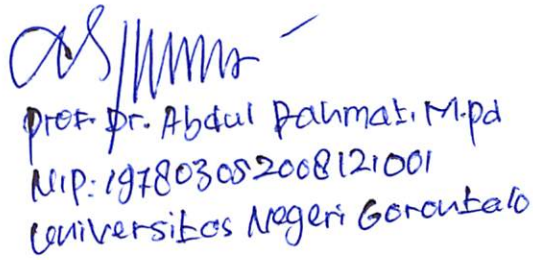 Prof. Dr. Abdul Rahmat. M.pd
NIP: 197803052008121001
Universitas Negeri Gorontalo